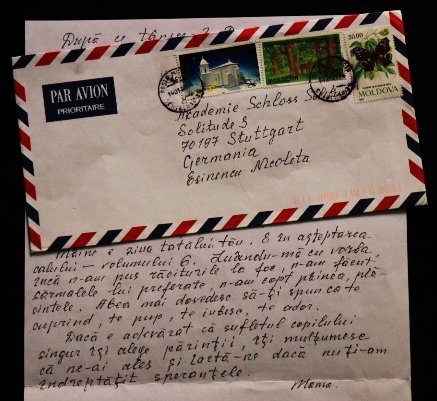 După ce
PAR AVION
PRIORITAIRE
50.00
MOLDOVA
Akademie Schloss
Solitude 3
70197 Stuttgart
Germania
Esinencu Nicoleta
Mâine e ziua tatălui tău. E în așteptarea
calului – volumului 6. Luându-mă cu vorba
încă n-am pus răciturile la foc, n-am făcut
sarmalele lui preferate, n-am copt pâinea, plă-
cintele. Abea mai dovedesc să-ți spun ca te
cuprind, te pup, te iubesc, te ador.
Dacă e adevărat că sufletul copilului
singur își alege părinții, îți mulțumesc
că ne-ai ales și iartă-ne dacă nu ți-am
îndreptățit speranțele.
Mama.